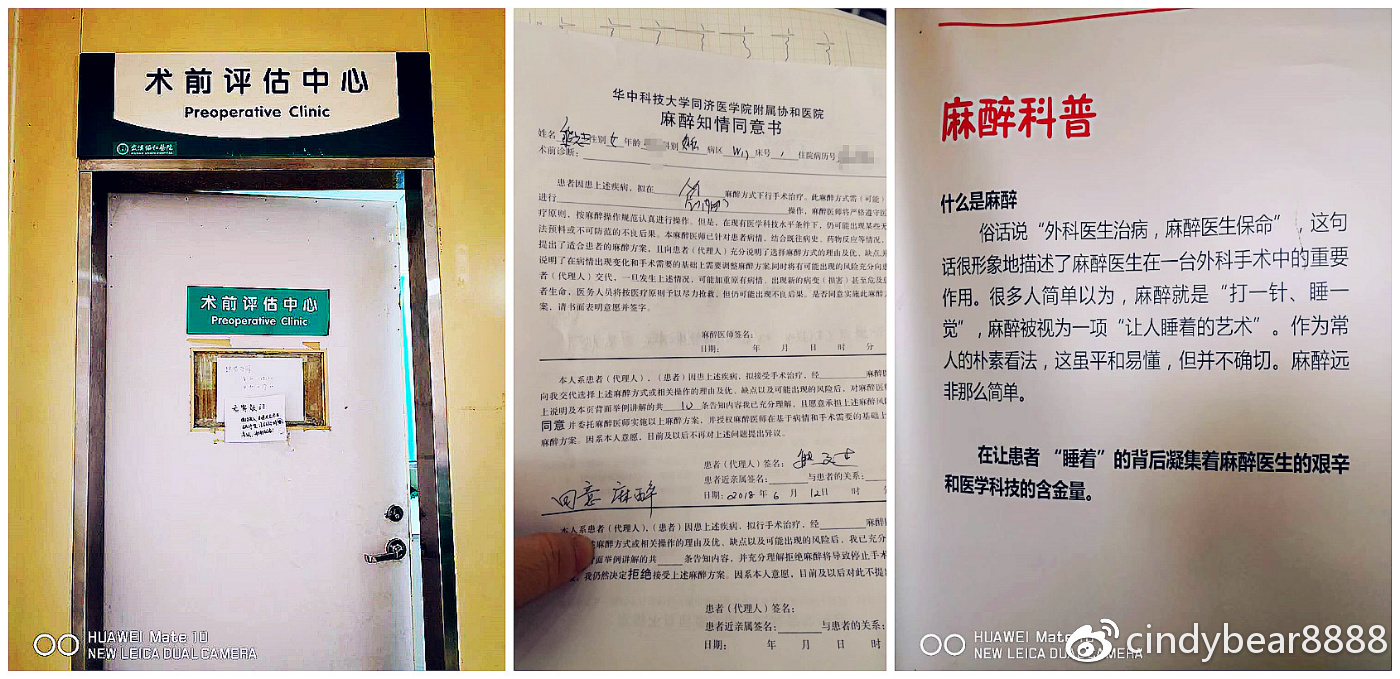 术前评估中心
Preoperative Clinic
武汉协和医院
术前评估中心
Preoperative Clinic
HUAWEI Mate 10
NEW LEICA DUAL CAMERA
华中科技大学同济医学院附属协和医院
麻醉知情同意书
姓名 性别 女 年龄 科别 病区 床号 住院病历号
术前诊断：
患者因患上述疾病，拟在 麻醉方式下行手术治疗。此麻醉方式需（可能）
进行 操作，麻醉医师将严格遵守医
疗原则，按麻醉操作规范认真进行操作。但是，在现有医学科技水平条件下，仍可能出现某些无
法预料或不可防范的不良后果。本麻醉医师已针对患者病情，结合既往病史、药物反应等情况，
提出了适合患者的麻醉方案，且向患者（代理人）充分说明了选择麻醉方式的理由及优、缺点，
说明了在病情出现变化和手术需要的基础上需要调整麻醉方案同时将有可能出现的风险充分向患
者（代理人）交代，一旦发生上述情况，可能加重原有病情、出现新的病变（损害）甚至危及患
者生命，医务人员将按医疗原则予以尽力抢救，但仍可能出现不良后果。是否同意实施此麻醉方
案，请书面表明意愿并签字。
麻醉医师签名：
日期： 年 月 日 时 分
本人系患者（代理人），（患者）因患上述疾病，拟接受手术治疗，经 麻醉
向我交代选择上述麻醉方式或相关操作的理由及优、缺点以及可能出现的风险后，对麻醉医
上说明及本页背面举例讲解的共 10 条告知内容我已充分理解，且愿意承担上述麻醉风
同意并委托麻醉医师实施以上麻醉方案，并授权麻醉医师在基于病情和手术需要的基础上
麻醉方案。因系本人意愿，目前及以后不再对上述问题提出异议。
患者（代理人）签名：
患者近亲属签名： 与患者的关系：
日期：2018 年 6 月 12 日 时 分
同意麻醉
本人系患者（代理人），（患者）因患上述疾病，拟行手术治疗，经 麻醉
麻醉方式或相关操作的理由及优、缺点以及可能出现的风险后，我已充分
面举例讲解的共 条告知内容，并充分理解拒绝麻醉将导致停止手术
我仍然决定拒绝接受上述麻醉方案。因系本人意愿，目前及以后对此不提出
患者（代理人）签名：
患者近亲属签名： 与患者的关系：
日期： 年 月 日 时
麻醉科普
什么是麻醉
俗话说“外科医生治病，麻醉医生保命”，这句
话很形象地描述了麻醉医生在一台外科手术中的重要
作用。很多人简单以为，麻醉就是“打一针、睡一
觉”，麻醉被视为一项“让人睡着的艺术”。作为常
人的朴素看法，这虽平和易懂，但并不确切。麻醉远
非那么简单。
在让患者“睡着”的背后凝集着麻醉医生的艰辛
和医学科技的含金量。
HUAWEI Mate
NEW LEICA DUAL CAMERA
cindybear8888